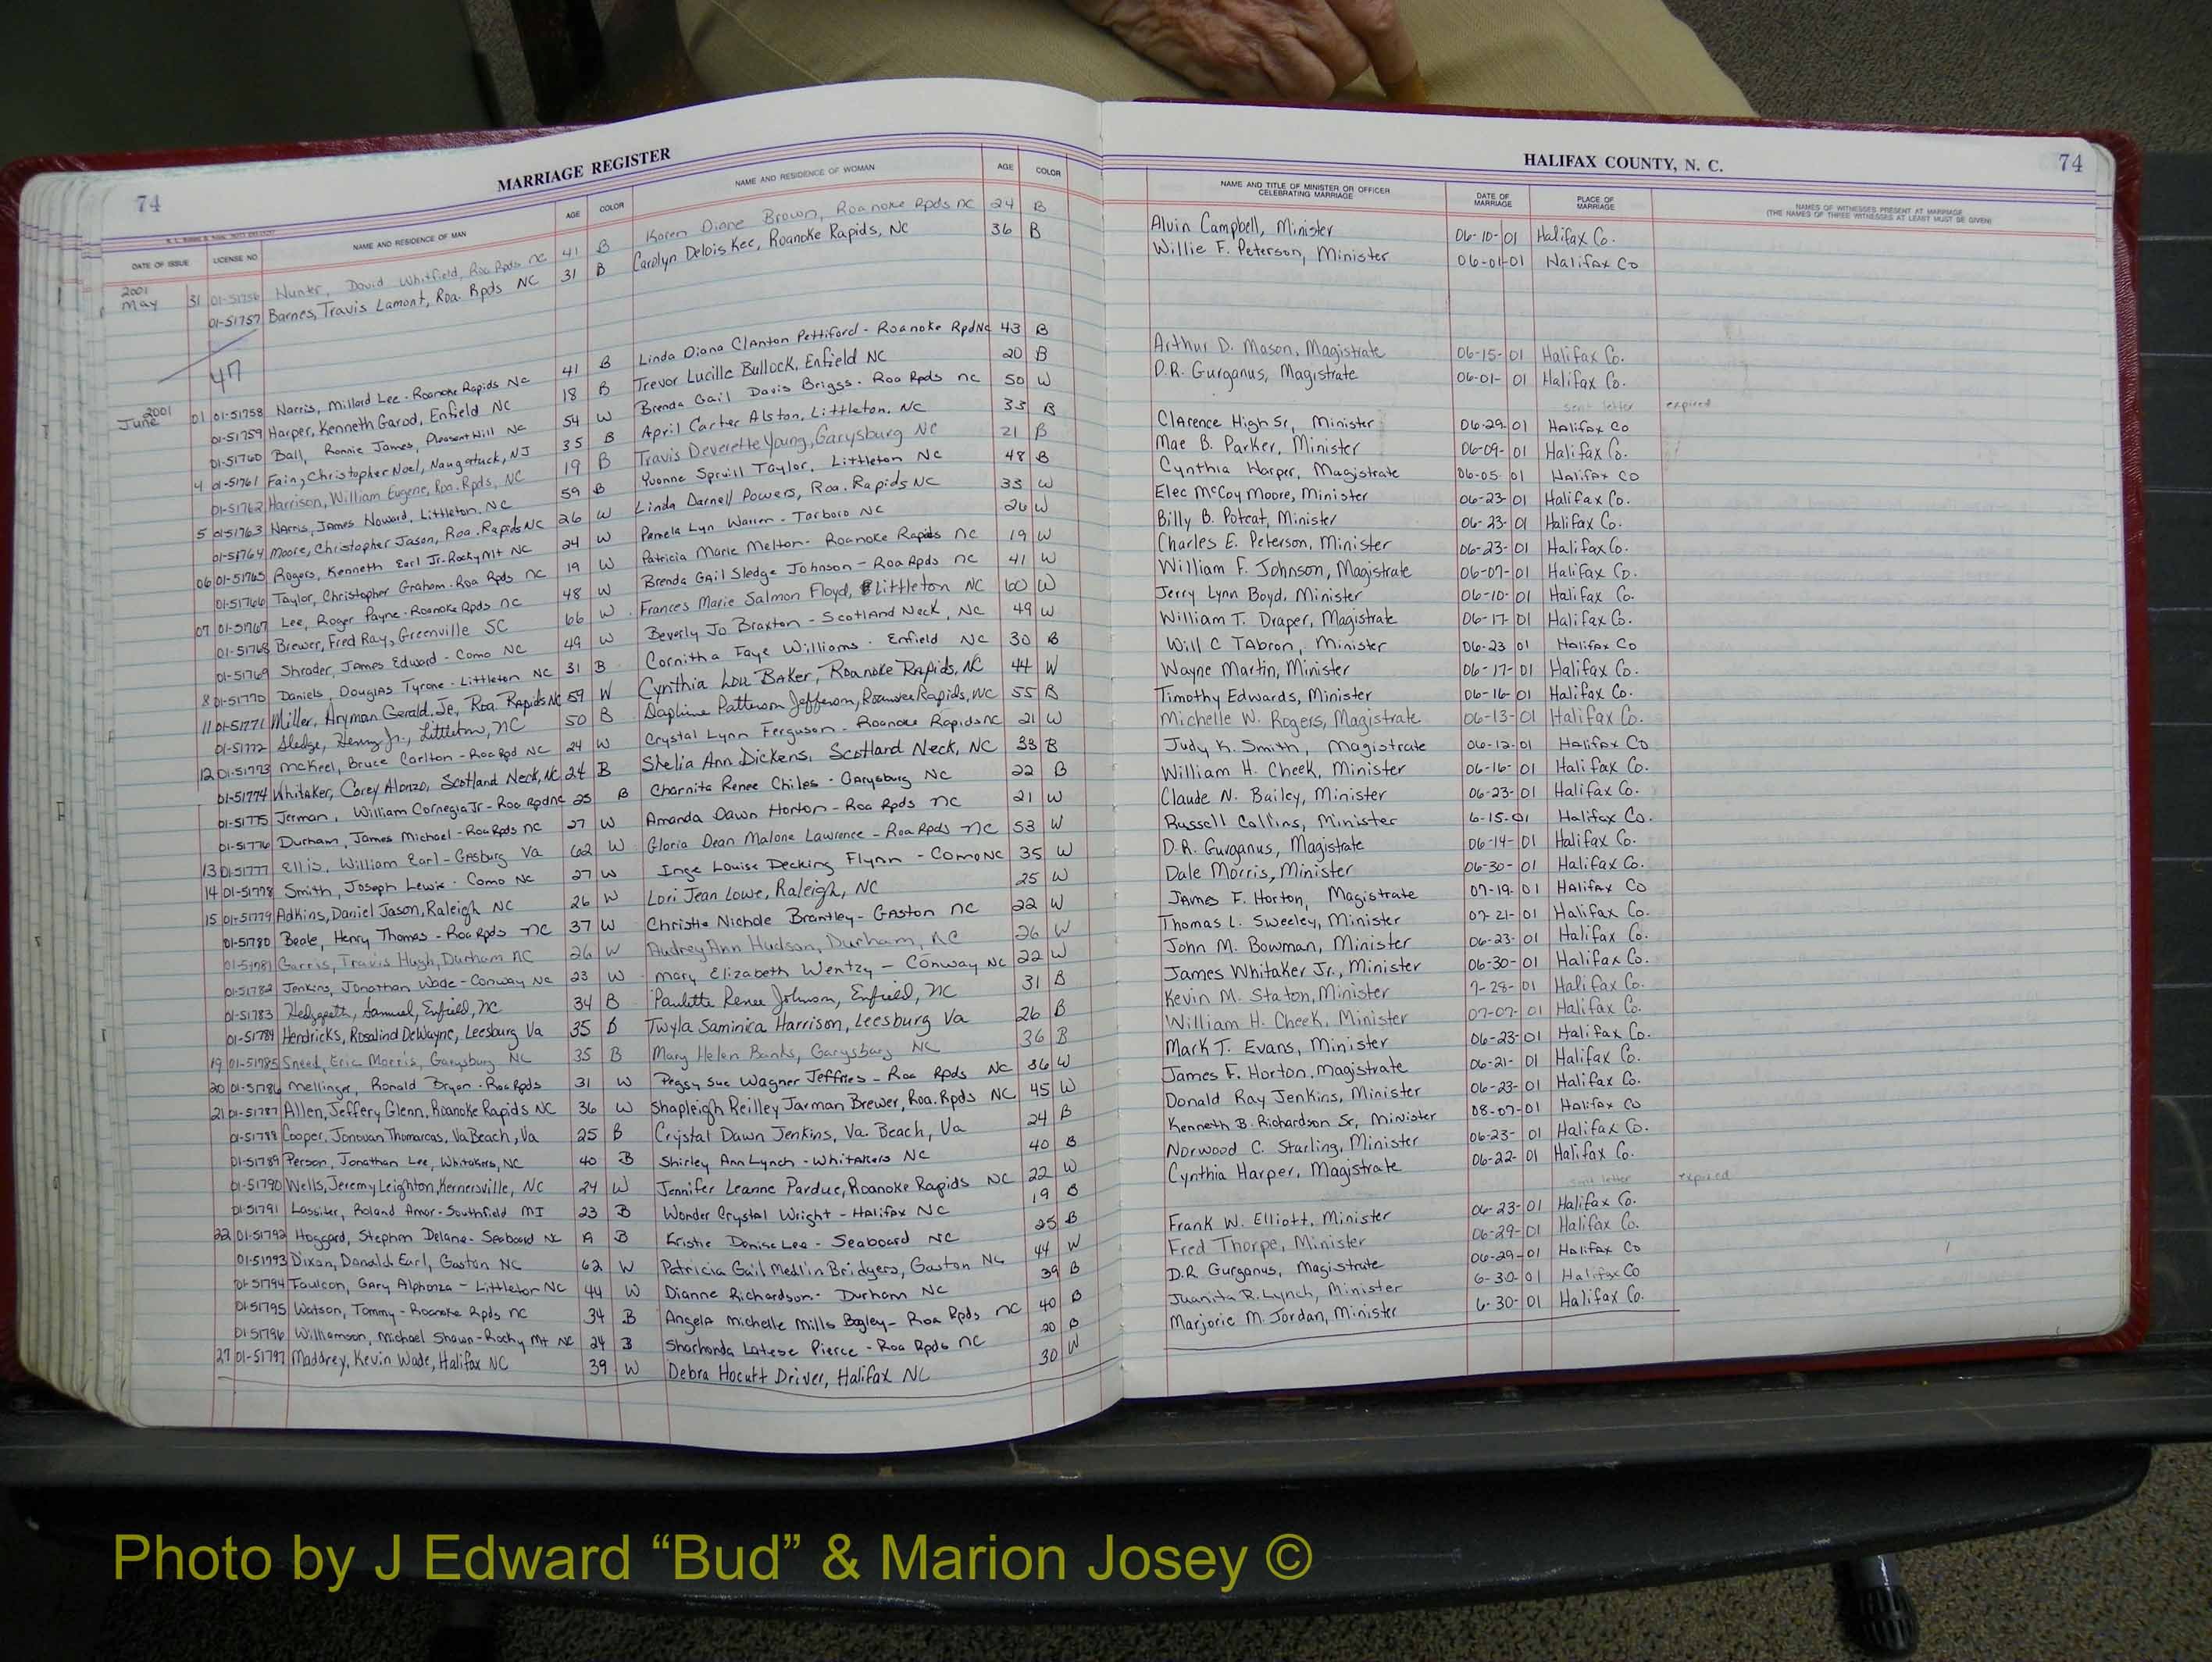 74 MARRIAGE REGISTER
HALIFAX COUNTY, N. C. 74
DATE OF ISSUE LICENSE NO NAME AND RESIDENCE OF MAN AGE COLOR NAME AND RESIDENCE OF WOMAN AGE COLOR
NAME AND TITLE OF MINISTER OR OFFICER CELEBRATING MARRIAGE DATE OF MARRIAGE PLACE OF MARRIAGE NAMES OF WITNESSES PRESENT AT MARRIAGE (THE NAMES OF THREE WITNESSES AT LEAST MUST BE GIVEN)
2001
May 31 01-51756 Hunter, David Whitfield, Roa Rpds NC 41 B Karen Diane Brown, Roanoke Rpds NC 24 B
01-51757 Barnes, Travis Lamont, Roa. Rpds NC 31 B Carolyn Delois Kee, Roanoke Rapids, NC 36 B
47
2001
June 01 01-51758 Harris, Millard Lee - Roanoke Rapids NC 41 B Linda Diana Clanton Pettiford - Roanoke Rpd NC 43 B
01-51759 Harper, Kenneth Garod, Enfield NC 18 B Trevor Lucille Bullock, Enfield NC 20 B
01-51760 Ball, Ronnie James, Pleasant Hill NC 54 W Brenda Gail Davis Briggs - Roa Rpds NC 50 W
4 01-51761 Fain, Christopher Noel, Naugatuck, NJ 35 B April Carter Alston, Littleton, NC 33 B
01-51762 Harrison, William Eugene, Roa. Rpds, NC 19 B Travis Deverette Young, Garysburg NC 21 B
5 01-51763 Harris, James Howard, Littleton, NC 59 B Yvonne Spruill Taylor, Littleton NC 48 B
01-51764 Moore, Christopher Jason, Roa. Rapids NC 26 W Linda Darnell Powers, Roa. Rapids NC 33 W
06 01-51765 Rogers, Kenneth Earl Jr - Rocky Mt NC 24 W Pamela Lyn Warren - Tarboro NC 26 W
01-51766 Taylor, Christopher Graham - Roa Rpds NC 19 W Patricia Marie Melton - Roanoke Rapids NC 19 W
07 01-51767 Lee, Roger Payne - Roanoke Rpds NC 48 W Brenda Gail Sledge Johnson - Roa Rpds NC 41 W
01-51768 Brewer, Fred Ray, Greenville SC 66 W Frances Marie Salmon Floyd, Littleton NC 60 W
01-51769 Shrader, James Edward - Como NC 49 W Beverly Jo Braxton - Scotland Neck, NC 49 W
8 01-51770 Daniels, Douglas Tyrone - Littleton NC 31 B Cornitha Faye Williams - Enfield NC 30 B
11 01-51771 Miller, Hryman Gerald, Jr, Roa. Rapids NC 59 W Cynthia Lou Baker, Roanoke Rapids, NC 44 W
01-51772 Sledge, Henry Jr., Littleton, NC 50 B Daphine Patterson Jefferson, Roanoke Rapids, NC 55 B
12 01-51773 McKeel, Bruce Carlton - Roa Rpd NC 24 W Crystal Lynn Ferguson - Roanoke Rapids NC 21 W
01-51774 Whitaker, Corey Alonzo, Scotland Neck, NC 24 B Shelia Ann Dickens, Scotland Neck, NC 33 B
01-51775 Jerman, William Cornegia Jr - Roa Rpd NC 25 B Charnita Renee Chiles - Garysburg NC 22 B
01-51776 Durham, James Michael - Roa Rpds NC 27 W Amanda Dawn Horton - Roa Rpds NC 21 W
13 01-51777 Ellis, William Earl - Va 62 W Gloria Dean Malone Lawrence - Roa Rpds NC 53 W
14 01-51778 Smith, Joseph Lewis - Como NC 27 W Inge Louise Decking Flynn - Como NC 35 W
15 01-51779 Adkins, Daniel Jason, Raleigh NC 26 W Lori Jean Lowe, Raleigh, NC 25 W
01-51780 Beale, Henry Thomas - Roa Rpds NC 37 W Christie Nichole Brantley - Gaston NC 22 W
01-51781 Garris, Travis Hugh, Durham NC 26 W Audrey Ann Hudson, Durham, NC 26 W
01-51782 Jenkins, Jonathan Wade - Conway NC 23 W Mary Elizabeth Wentzy - Conway NC 22 W
01-51783 Hedgepeth, Samuel, Enfield, NC 34 B Paulette Renee Johnson, Enfield, NC 31 B
01-51784 Hendricks, Rosalind DeWayne, Leesburg Va 35 B Twyla Saminica Harrison, Leesburg Va 26 B
19 01-51785 Sneed, Eric Morris, Garysburg NC 35 B Mary Helen Banks, Garysburg NC 36 B
20 01-51786 Mellinger, Ronald Bryan - Roa Rpds 31 W Peggy Sue Wagner Jeffries - Roa Rpds NC 36 W
21 01-51787 Allen, Jeffery Glenn, Roanoke Rapids NC 36 W Shapleigh Reilley Jarman Brewer, Roa. Rpds NC 45 W
01-51788 Cooper, Jonovan Thomarcas, Va Beach, Va 25 B Crystal Dawn Jenkins, Va. Beach, Va 24 B
01-51789 Person, Jonathan Lee, Whitakers, NC 40 B Shirley Ann Lynch - Whitakers NC 40 B
01-51790 Wells, Jeremy Leighton, Kernersville, NC 24 W Jennifer Leanne Pardue, Roanoke Rapids NC 22 W
01-51791 Lassiter, Roland Amar - Southfield MI 23 B Wonder Crystal Wright - Halifax NC 19 B
22 01-51792 Hoggard, Stephon Delane - Seaboard NC 19 B Kristie Denise Lee - Seaboard NC 25 B
01-51793 Dixon, Donald Earl, Gaston NC 62 W Patricia Gail Medlin Bridgers, Gaston NC 44 W
01-51794 Faulcon, Gary Alphonza - Littleton NC 44 W Dianne Richardson - Durham NC 39 B
01-51795 Watson, Tommy - Roanoke Rpds NC 34 B Angela Michelle Mills Bagley - Roa Rpds NC 40 B
01-51796 Williamson, Michael Shawn - Rocky Mt NC 24 B Sharhonda Latese Pierce - Roa Rpds NC 20 B
27 01-51797 Maddrey, Kevin Wade, Halifax NC 39 W Debra Hocutt Driver, Halifax NC 30 W
Alvin Campbell, Minister 06-10-01 Halifax Co.
Willie F. Peterson, Minister 06-01-01 Halifax Co
Arthur D. Mason, Magistrate 06-15-01 Halifax Co.
D.R. Gurganus, Magistrate 06-01-01 Halifax Co.
sent letter expired
Clarence High Sr, Minister 06-29-01 Halifax Co
Mae B. Parker, Minister 06-09-01 Halifax Co.
Cynthia Harper, Magistrate 06-05-01 Halifax Co
Elec McCoy Moore, Minister 06-23-01 Halifax Co.
Billy B. Poteat, Minister 06-23-01 Halifax Co.
Charles E. Peterson, Minister 06-23-01 Halifax Co.
William F. Johnson, Magistrate 06-07-01 Halifax Co.
Jerry Lynn Boyd, Minister 06-10-01 Halifax Co.
William T. Draper, Magistrate 06-17-01 Halifax Co.
Will C Tabron, Minister 06-23 01 Halifax Co
Wayne Martin, Minister 06-17-01 Halifax Co.
Timothy Edwards, Minister 06-16-01 Halifax Co.
Michelle W. Rogers, Magistrate 06-13-01 Halifax Co.
Judy K. Smith, Magistrate 06-12-01 Halifax Co
William H. Cheek, Minister 06-16-01 Halifax Co.
Claude N. Bailey, Minister 06-23-01 Halifax Co.
Russell Collins, Minister 6-15-01 Halifax Co.
D.R. Gurganus, Magistrate 06-14-01 Halifax Co.
Dale Morris, Minister 06-30-01 Halifax Co.
James F. Horton, Magistrate 07-19-01 Halifax Co
Thomas L. Sweeley, Minister 07-21-01 Halifax Co.
John M. Bowman, Minister 06-23-01 Halifax Co.
James Whitaker Jr., Minister 06-30-01 Halifax Co.
Kevin M. Staton, Minister 7-28-01 Halifax Co.
William H. Cheek, Minister 07-07-01 Halifax Co.
Mark T. Evans, Minister 06-23-01 Halifax Co.
James F. Horton, Magistrate 06-21-01 Halifax Co.
Donald Ray Jenkins, Minister 06-23-01 Halifax Co.
Kenneth B. Richardson Sr, Minister 08-07-01 Halifax Co
Norwood C. Starling, Minister 06-23-01 Halifax Co.
Cynthia Harper, Magistrate 06-22-01 Halifax Co.
sent letter expired
Frank W. Elliott, Minister 06-23-01 Halifax Co.
Fred Thorpe, Minister 06-29-01 Halifax Co.
D.R Gurganus, Magistrate 06-29-01 Halifax Co
Juanita R. Lynch, Minister 6-30-01 Halifax Co
Marjorie M. Jordan, Minister 6-30-01 Halifax Co.
Photo by J Edward “Bud” & Marion Josey ©